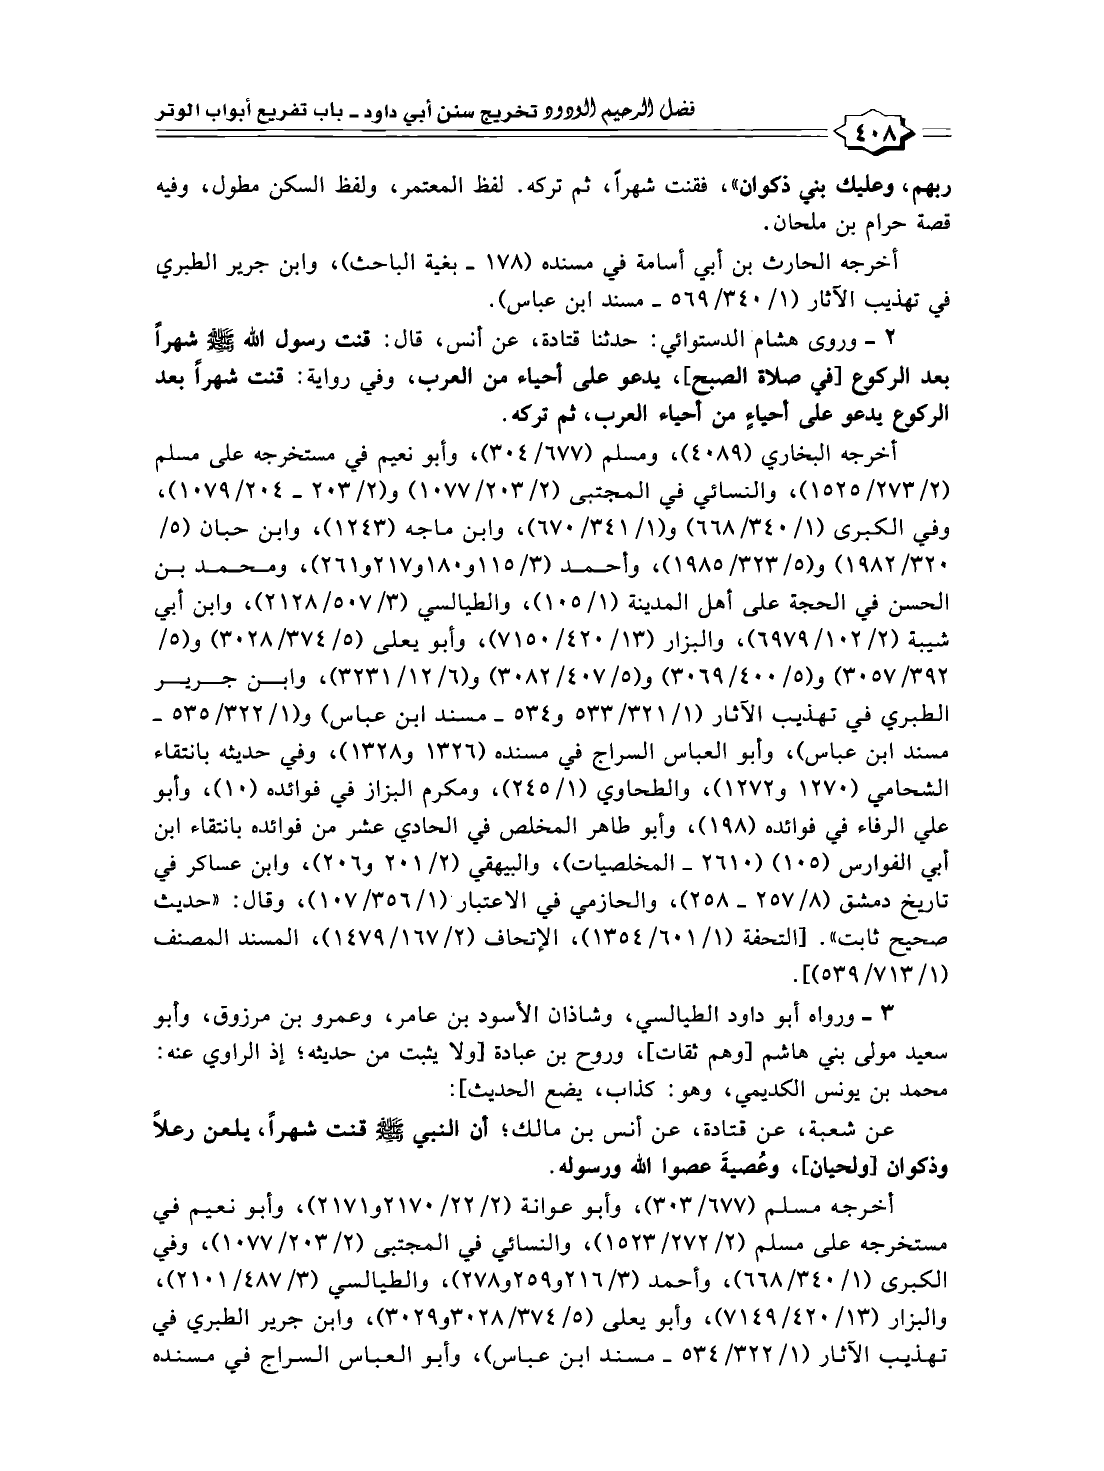 فضل الرحيم الودود تخريج سنن أبي داود - باب تفريع أبواب الوتر
٤٠٨
ربهم، وعليك بني ذكوان»، فقنت شهراً، ثم تركه. لفظ المعتمر، ولفظ السكن مطول، وفيه
قصة حرام بن ملحان.
أخرجه الحارث بن أبي أسامة في مسنده (١٧٨ - بغية الباحث)، وابن جرير الطبري
في تهذيب الآثار (١/ ٣٤٠/ ٥٦٩ - مسند ابن عباس).
٢ - وروى هشام الدستوائي: حدثنا قتادة، عن أنس، قال: قنت رسول الله ﷺ شهراً
بعد الركوع [في صلاة الصبح]، يدعو على أحياء من العرب، وفي رواية: قنت شهراً بعد
الركوع يدعو على أحياءٍ من أحياء العرب، ثم تركه.
أخرجه البخاري (٤٠٨٩)، ومسلم (٦٧٧/ ٣٠٤)، وأبو نعيم في مستخرجه على مسلم
(٢/ ٢٧٣/ ١٥٢٥)، والنسائي في المجتبى (٢/ ٢٠٣/ ١٠٧٧) و(٢/ ٢٠٣ - ٢٠٤/ ١٠٧٩)،
وفي الكبرى (١/ ٣٤٠/ ٦٦٨) و(١/ ٣٤١/ ٦٧٠)، وابن ماجه (١٢٤٣)، وابن حبان (٥/
٣٢٠/ ١٩٨٢) و(٥/ ٣٢٣/ ١٩٨٥)، وأحمد (٣/ ١١٥ و١٨٠ و٢١٧ و٢٦١)، ومحمد بن
الحسن في الحجة على أهل المدينة (١/ ١٠٥)، والطيالسي (٣/ ٥٠٧/ ٢١٢٨)، وابن أبي
شيبة (٢/ ١٠٢/ ٦٩٧٩)، والبزار (١٣/ ٤٢٠/ ٧١٥٠)، وأبو يعلى (٥/ ٣٧٤/ ٣٠٢٨) و(٥/
٣٩٢/ ٣٠٥٧) و(٥/ ٤٠٠/ ٣٠٦٩) و(٥/ ٤٠٧/ ٣٠٨٢) و(٦/ ١٢/ ٣٢٣١)، وابن جرير
الطبري في تهذيب الآثار (١/ ٣٢١/ ٥٣٣ و٥٣٤ - مسند ابن عباس) و(١/ ٣٢٢/ ٥٣٥ -
مسند ابن عباس)، وأبو العباس السراج في مسنده (١٣٢٦ و١٣٢٨)، وفي حديثه بانتقاء
الشحامي (١٢٧٠ و١٢٧٢)، والطحاوي (١/ ٢٤٥)، ومكرم البزاز في فوائده (١٠)، وأبو
علي الرفاء في فوائده (١٩٨)، وأبو طاهر المخلص في الحادي عشر من فوائده بانتقاء ابن
أبي الفوارس (١٠٥) (٢٦١٠ - المخلصيات)، والبيهقي (٢/ ٢٠١ و٢٠٦)، وابن عساكر في
تاريخ دمشق (٨/ ٢٥٧ - ٢٥٨)، والحازمي في الاعتبار (١/ ٣٥٦/ ١٠٧)، وقال: «حديث
صحيح ثابت». [التحفة (١/ ٦٠١/ ١٣٥٤)، الإتحاف (٢/ ١٦٧/ ١٤٧٩)، المسند المصنف
(١/ ٧١٣/ ٥٣٩)].
٣ - ورواه أبو داود الطيالسي، وشاذان الأسود بن عامر، وعمرو بن مرزوق، وأبو
سعيد مولى بني هاشم [وهم ثقات]، وروح بن عبادة [ولا يثبت من حديثه؛ إذ الراوي عنه:
محمد بن يونس الكديمي، وهو: كذاب، يضع الحديث]:
عن شعبة، عن قتادة، عن أنس بن مالك؛ أن النبي ﷺ قنت شهراً، يلعن رعلاً
وذكوان [ولحيان]، وعُصيةَ عصوا الله ورسوله.
أخرجه مسلم (٦٧٧/ ٣٠٣)، وأبو عوانة (٢/ ٢٢/ ٢١٧٠ و٢١٧١)، وأبو نعيم في
مستخرجه على مسلم (٢/ ٢٧٢/ ١٥٢٣)، والنسائي في المجتبى (٢/ ٢٠٣/ ١٠٧٧)، وفي
الكبرى (١/ ٣٤٠/ ٦٦٨)، وأحمد (٣/ ٢١٦ و٢٥٩ و٢٧٨)، والطيالسي (٣/ ٤٨٧/ ٢١٠١)،
والبزار (١٣/ ٤٢٠/ ٧١٤٩)، وأبو يعلى (٥/ ٣٧٤/ ٣٠٢٨ و٣٠٢٩)، وابن جرير الطبري في
تهذيب الآثار (١/ ٣٢٢/ ٥٣٤ - مسند ابن عباس)، وأبو العباس السراج في مسنده